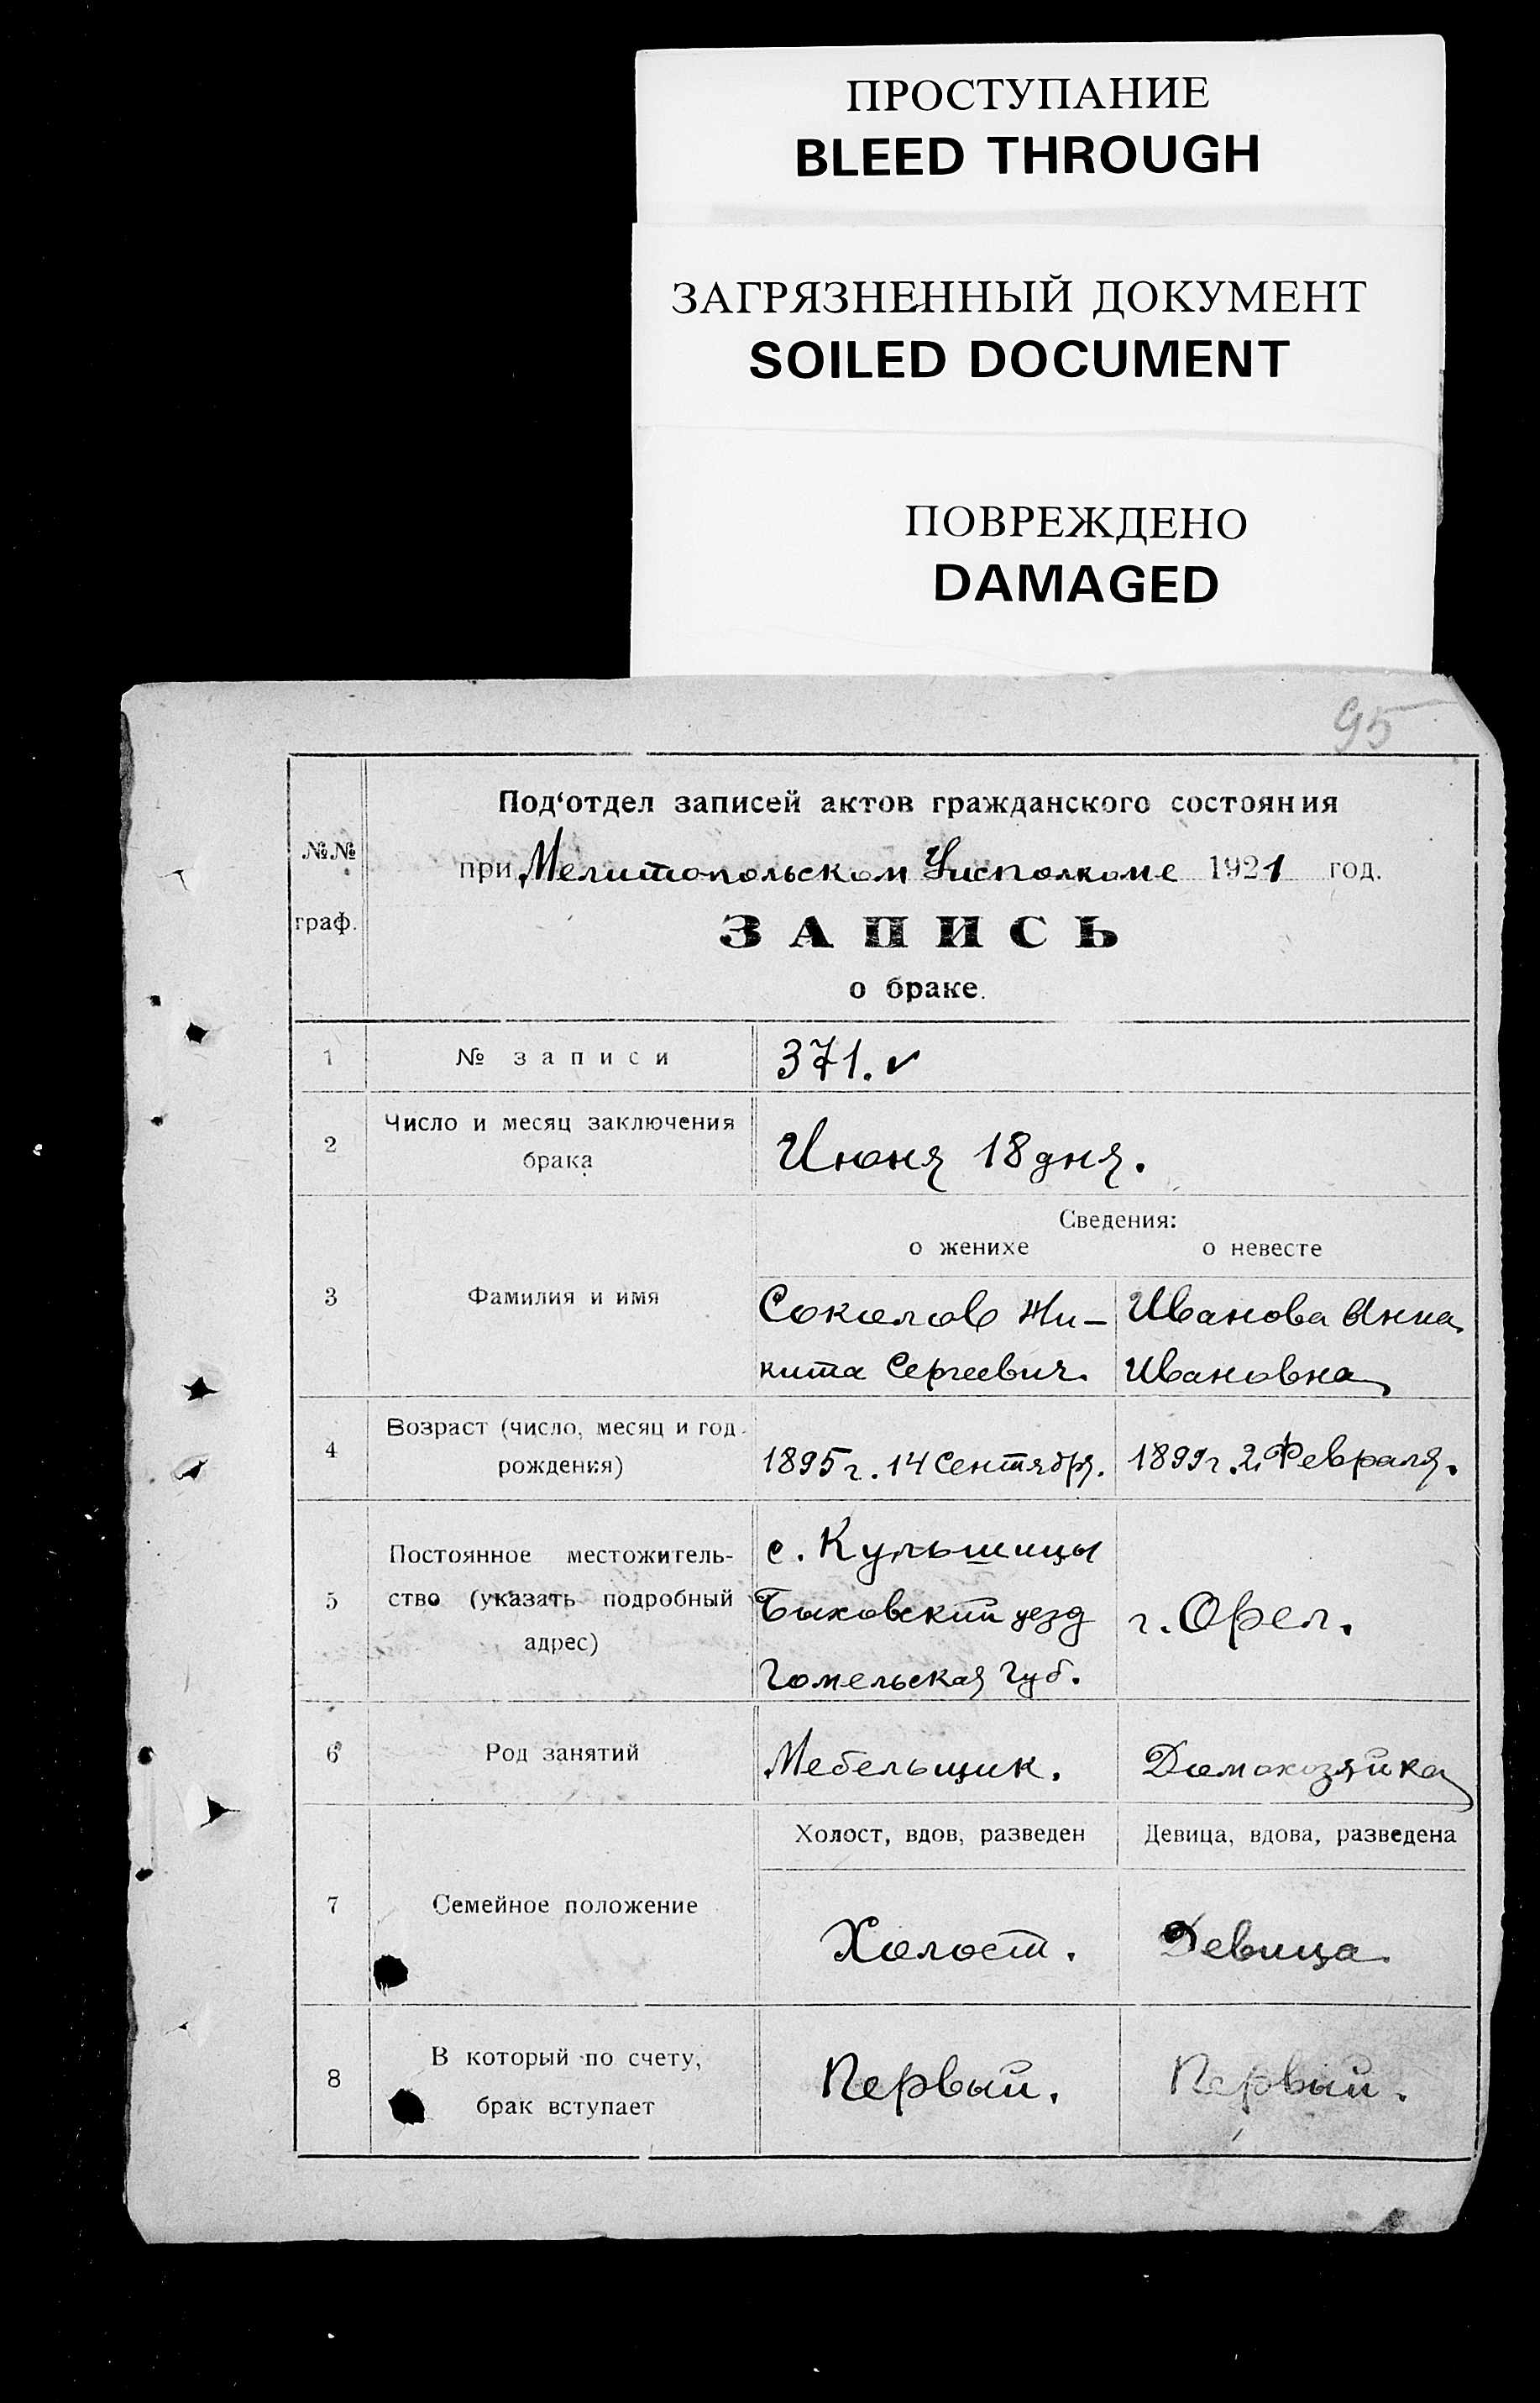 ПРОСТУПАНИЕ
BLEED THROUGH
ЗАГРЯЗНЕННЫЙ ДОКУМЕНТ
SOILED DOCUMENT
ПОВРЕЖДЕНО
DAMAGED
95
№№ граф.
Под‘отдел записей актов гражданского состояния
при Мелитопольском Уисполкоме 1921 год.
ЗАПИСЬ
о браке.
1 № записи 371. ✓
2 Число и месяц заключения
брака
Июня 18 дня.
Сведения:
о женихе о невесте
3 Фамилия и имя
Соколов Ни-
кита Сергеевич.
Иванова Анна
Ивановна
4 Возраст (число, месяц и год
рождения)
1895 г. 14 Сентября. 1899 г. 2 Февраля.
5 Постоянное местожитель-
ство (указать подробный
адрес)
с. Кульшицы
Быховский уезд
Гомельская Губ.
г. Орел.
6 Род занятий Мебельщик. Домохозяйка
Холост, вдов, разведен Девица, вдова, разведена
7 Семейное положение
Холост. Девица.
8 В который по счету,
брак вступает
Первый. Первый.